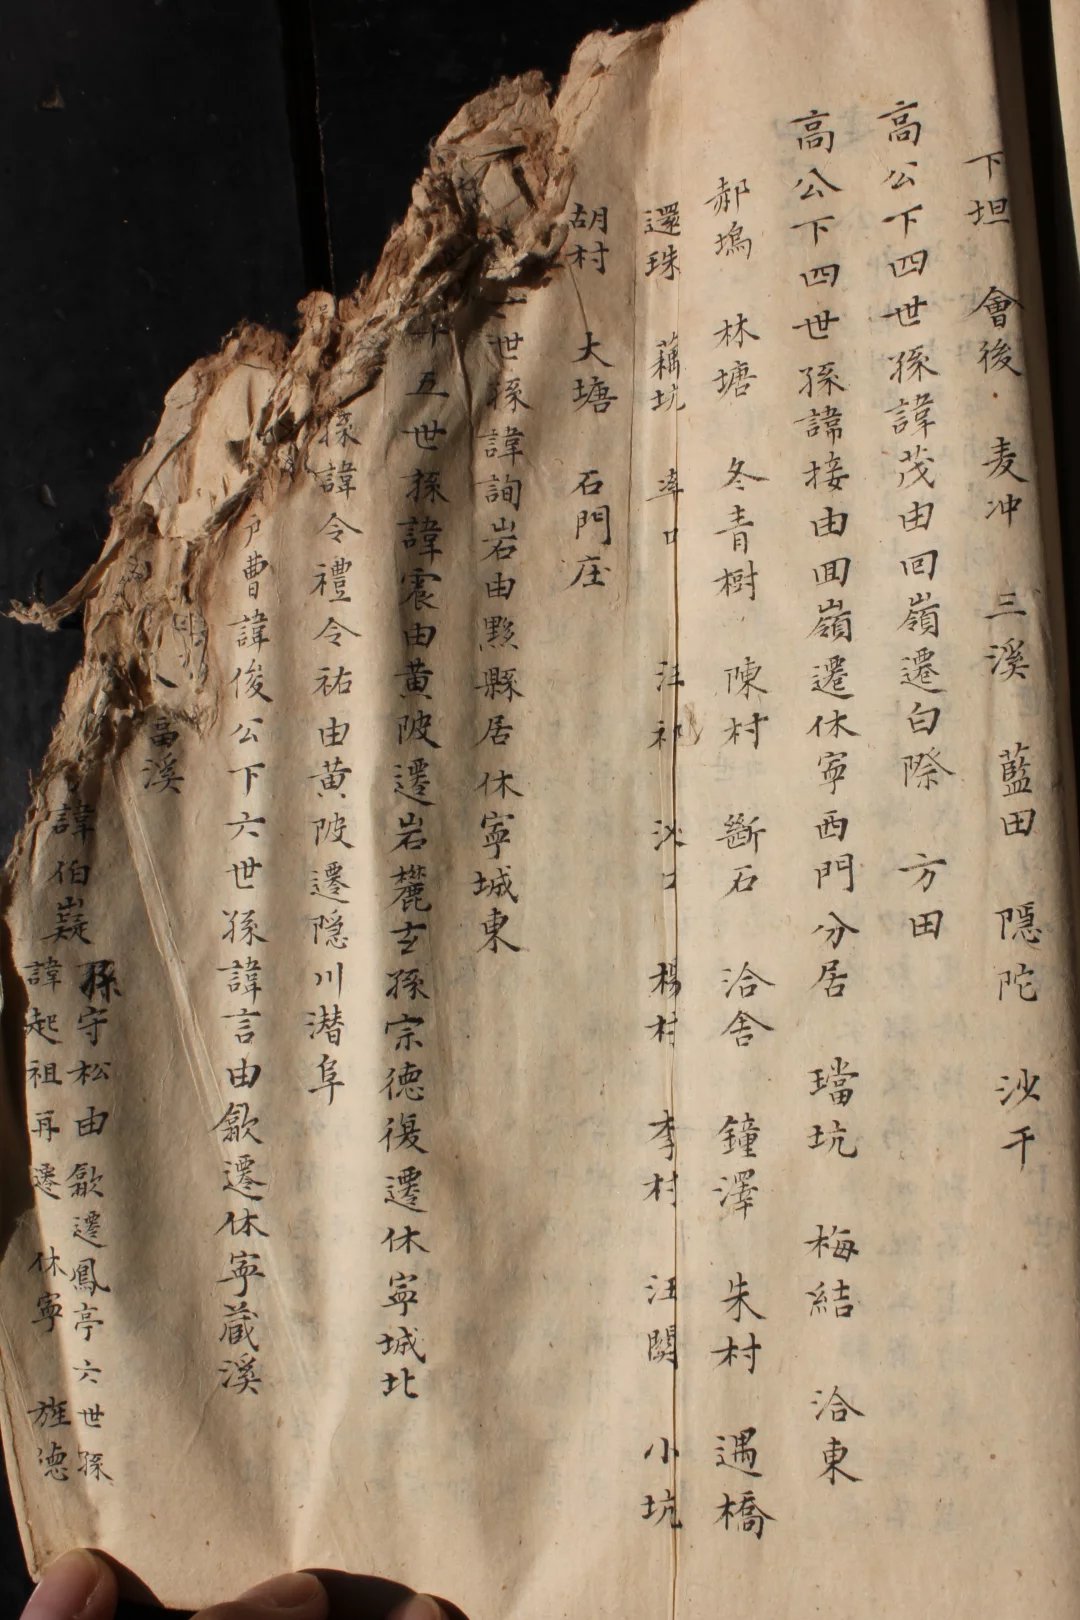 下坦 會後 麦冲 三溪 藍田 隱陀 沙干
高公下四世孫諱茂由回嶺遷白際 方田
高公下四世孫諱接由回嶺遷休寧西門分居 璫坑 梅結 洽東
郝塢 林塘 冬青樹 陳村 斷石 洽舍 鐘澤 朱村 遇橋
還珠 藕坑 口 汪祁 口 楊村 李村 汪闗 小坑
胡村 大塘 石門庄
世孫諱詢岩由黟縣居休寧城東
下五世孫諱震由黄陂遷岩麓玄孫宗德復遷休寧城北
孫諱令禮令祐由黄陂遷隐川潜阜
户曹諱俊公下六世孫諱言由歙遷休寧蔵溪
畐溪
諱伯嶷 孫守松由歙遷鳳亭六世孫
諱起祖再遷休寧 旌德